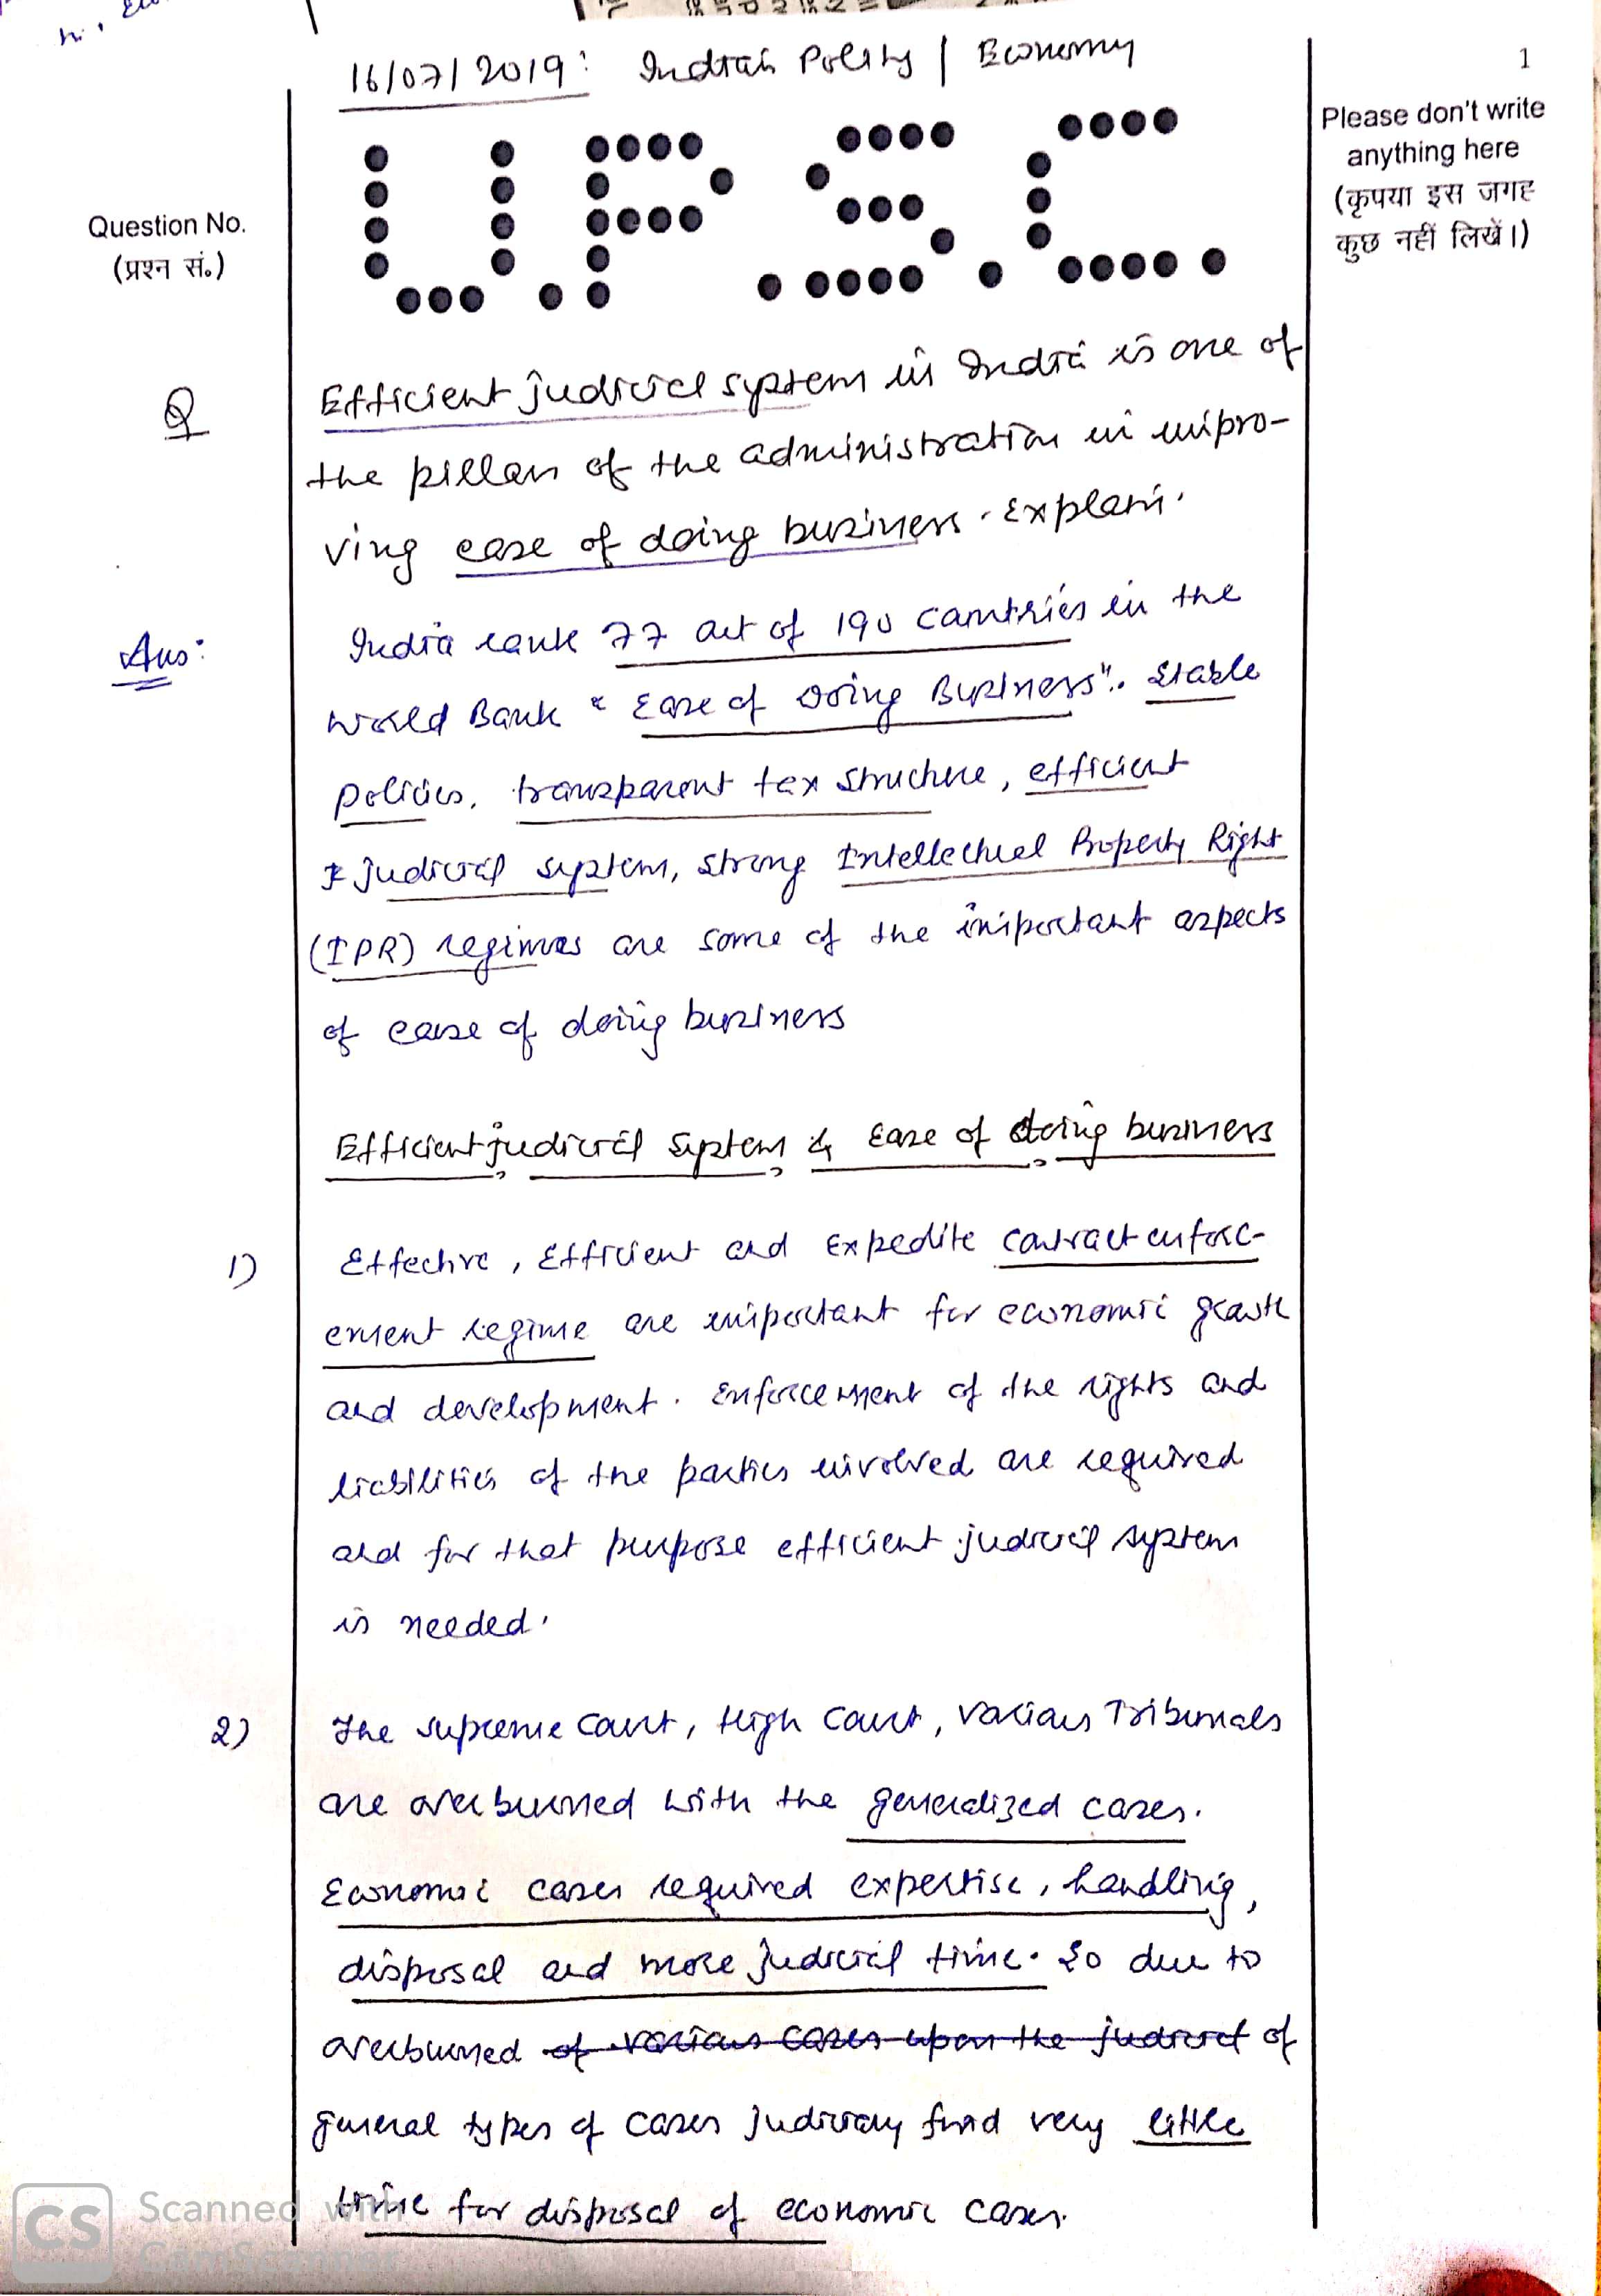 16/07/2019: Indian Polity | Economy
1
Please don't write
anything here
(कृपया इस जगह
कुछ नहीं लिखें।)
U.P.S.C.
Question No.
(प्रश्न सं.)
Q
Efficient judicial system in India is one of
the pillars of the administration in impro-
ving ease of doing business. Explain.
Ans:
India rank 77 out of 190 countries in the
World Bank "Ease of Doing Business". Stable
policies, transparent tax structure, efficient
judicial system, strong Intellectual Property Right
(IPR) regimes are some of the important aspects
of ease of doing business
Efficient judicial system & Ease of doing business
1)
Effective, Efficient and Expedite contract enforc-
ement regime are important for economic growth
and development. Enforcement of the rights and
liabilities of the parties involved are required
and for that purpose efficient judicial system
is needed.
2)
The supreme court, High Court, various Tribunals
are overburned with the generalized cases.
Economic cases required expertise, handling,
disposal and more judicial time. So due to
overburned of various cases upon the judicial of
general types of cases judiciary find very little
time for disposal of economic cases.
CS Scanned with
CamScanner